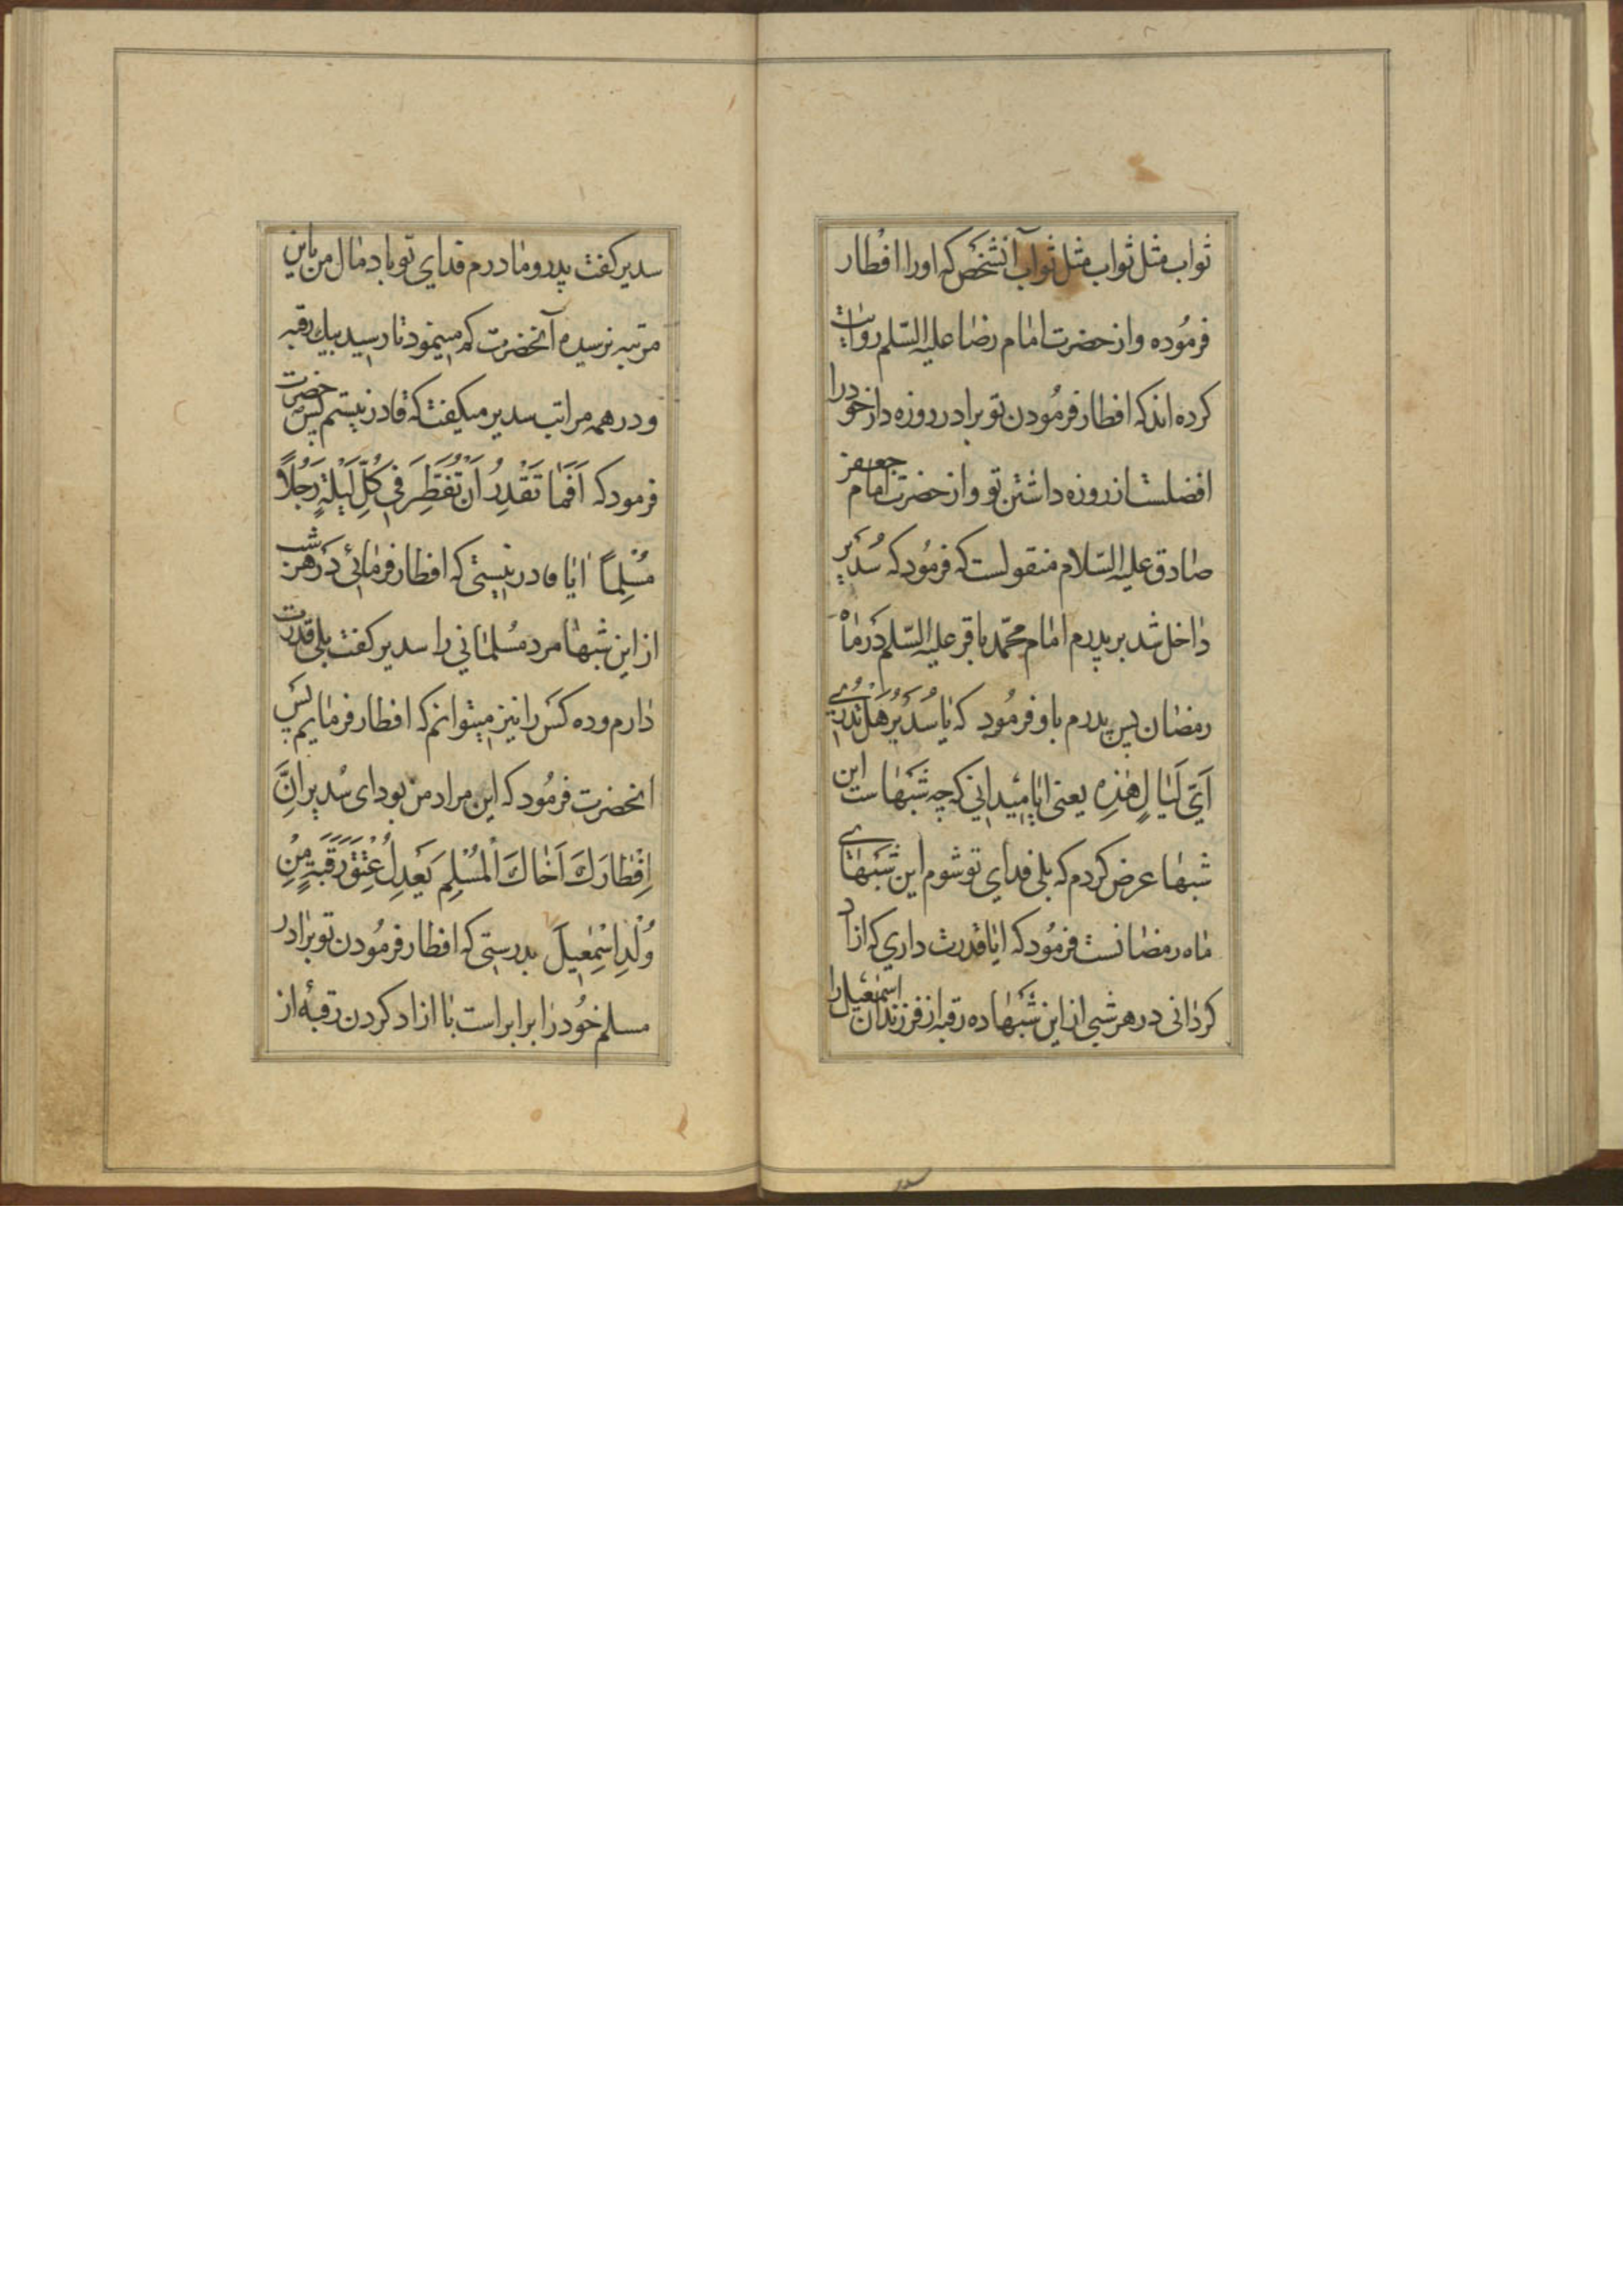 ثواب مثل ثواب مثل ثواب آنشخص که اورا افطار
فرموده واز حضرت امام رضا علیه السّلم روایت
کرده اند که افطار فرمودن تو برادر روزه دار خودرا
افضلست از روزه داشتن تو واز حضرت امام جعفر
صادق علیه السّلام منقولست که فرمود که سُدَیر
داخل شد بر پدرم امام محمّد باقر علیه السّلم در ماه
رمضان پس پدرم باو فرمود که یا سُدَیرُ هَل تَدری
اَیَّ لَیالٍ هٰذِهِ یعنی ایا میدانی که چه شبهاست این
شبها عرض کردم که بلی فدای تو شوم این شبهای
ماه رمضانست فرمود که ایا قدرت داری که ازاد
کردانی در هر شبی از این شبها ده رقبه از فرزندان اسمعیل را
سدیر کفت پدر و مادرم فدای تو باد مال من باین
مرتبه نرسیده آنحضرت کم مینمود تا رسید بیك رقبه
ودر همه مراتب سدیر میکفت که قادر نیستم پس حضرت
فرمود که اَفَما تَقْدِرُ اَنْ تُفَطِّرَ فی کُلِّ لَیْلَةٍ رَجُلاً
مُسْلِماً ایا قادر نیستی که افطار فرمائی در هر شب
از این شبها مرد مُسلمانی را سدیر کفت بلی قدرت
دارم وده کس را نیز میتوانم که افطار فرمایم پس
انحضرت فرمود که این مراد من بود ای سُدیر اِنَّ
اِفْطارَكَ اَخاكَ الْمُسْلِمَ یَعْدِلُ عِتْقَ رَقَبَةٍ مِنْ
وُلْدِ اِسْمٰعیلَ بدرستی که افطار فرمودن تو برادر
مسلم خود را برابر است با ازاد کردن رقبهٔ از